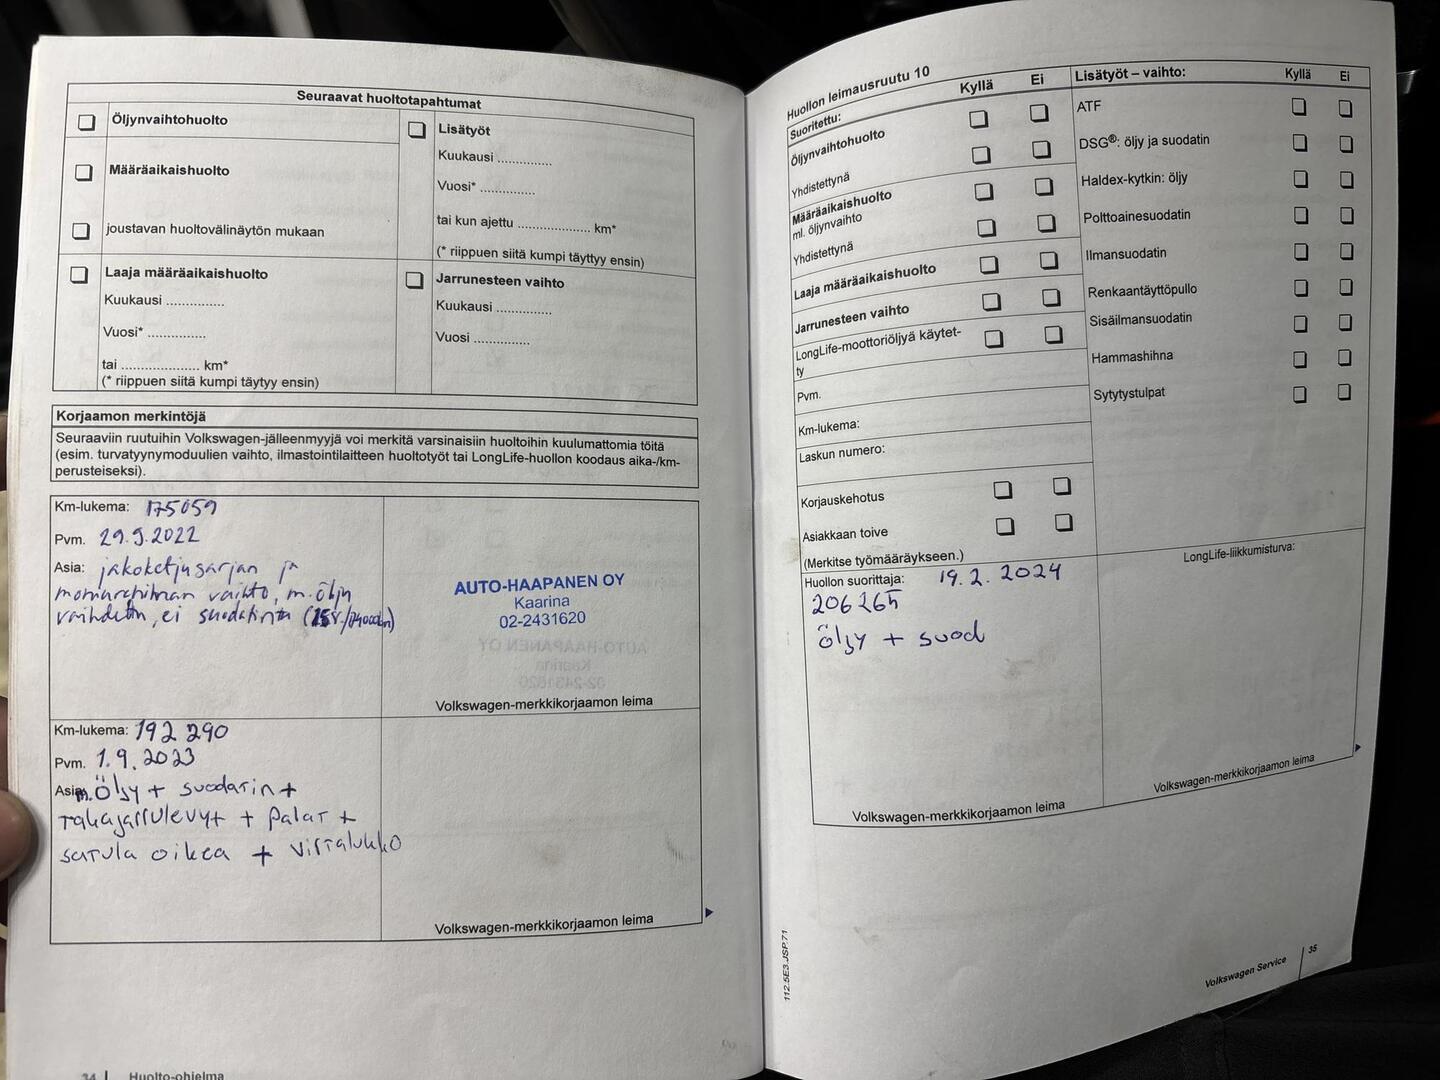 Seuraavat huoltotapahtumat
Öljynvaihtohuolto
Määräaikaishuolto
joustavan huoltovälinäytön mukaan
Lisätyöt
Kuukausi ..............
Vuosi* ..............
tai kun ajettu .................... km*
(* riippuen siitä kumpi täyttyy ensin)
Laaja määräaikaishuolto
Kuukausi ..............
Vuosi* ..............
tai .................... km*
(* riippuen siitä kumpi täytyy ensin)
Jarrunesteen vaihto
Kuukausi ..............
Vuosi ..............
Korjaamon merkintöjä
Seuraaviin ruutuihin Volkswagen-jälleenmyyjä voi merkitä varsinaisiin huoltoihin kuulumattomia töitä
(esim. turvatyynymoduulien vaihto, ilmastointilaitteen huoltotyöt tai LongLife-huollon koodaus aika-/km-
perusteiseksi).
Km-lukema: 175059
Pvm. 29.9.2022
Asia: jakoketjusarjan ja
moniurahihnan vaihto, m.öljy
vaihdettu, ei suodatinta
AUTO-HAAPANEN OY
Kaarina
02-2431620
Volkswagen-merkkikorjaamon leima
Km-lukema: 192 290
Pvm. 1.9.2023
Asia: m.Öljy + suodatin +
takajarrulevyt + palat +
satula oikea + virtalukko
Volkswagen-merkkikorjaamon leima
34 | Huolto-ohjelma
Huollon leimausruutu 10
Suoritettu: Kyllä Ei
Öljynvaihtohuolto
Yhdistettynä
Määräaikaishuolto
ml. öljynvaihto
Yhdistettynä
Laaja määräaikaishuolto
Jarrunesteen vaihto
LongLife-moottoriöljyä käytet-
ty
Pvm.
Km-lukema:
Laskun numero:
Korjauskehotus
Asiakkaan toive
(Merkitse työmääräykseen.)
Lisätyöt – vaihto: Kyllä Ei
ATF
DSG®: öljy ja suodatin
Haldex-kytkin: öljy
Polttoainesuodatin
Ilmansuodatin
Renkaantäyttöpullo
Sisäilmansuodatin
Hammashihna
Sytytystulpat
Huollon suorittaja: 19.2.2024
206265
öljy + suod
Volkswagen-merkkikorjaamon leima
LongLife-liikkumisturva:
Volkswagen-merkkikorjaamon leima
112.5E3.JSP.71
Volkswagen Service | 35